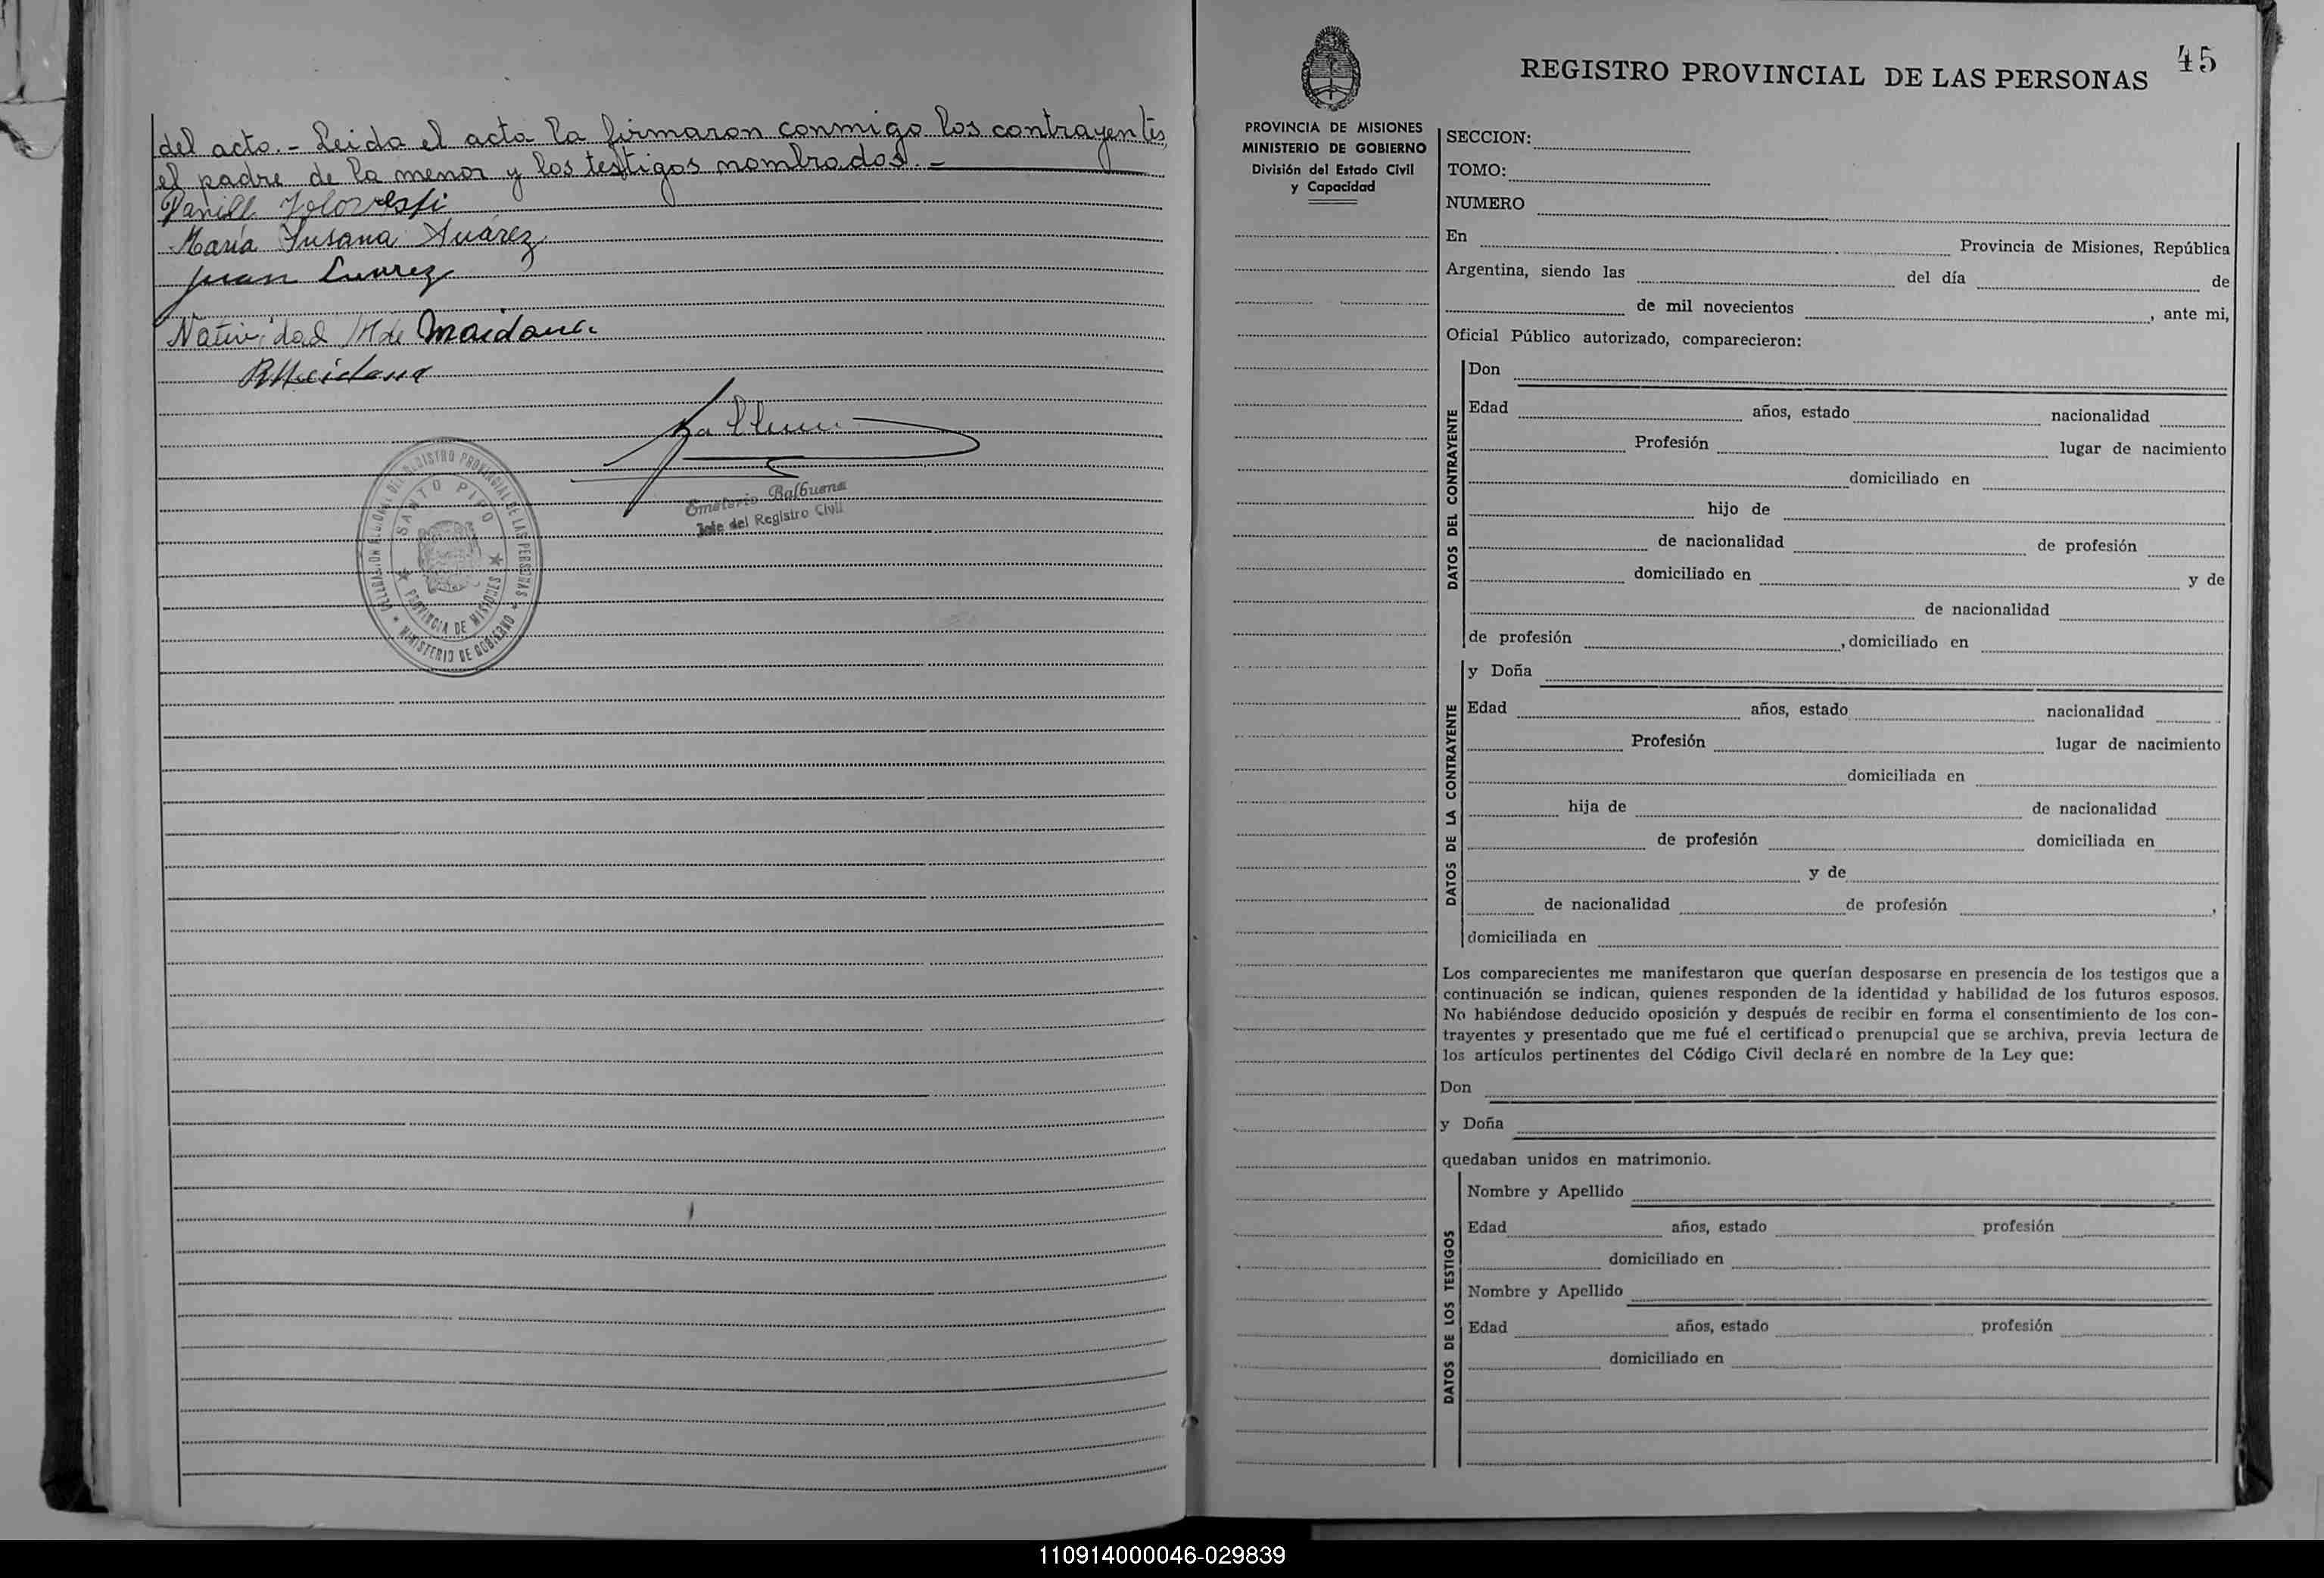 del acto.- Leida el acta la firmaron conmigo los contrayentes,
el padre de la menor y los testigos nombrados.-
María Susana Suárez
Juan Suarez
Natividad M de Maidana
RMaidana
DELEGACION REGIONAL DEL REGISTRO PROVINCIAL DE LAS PERSONAS
★ MINISTERIO DE GOBIERNO ★
SANTO PIPO
★ PROVINCIA DE MISIONES ★
Emeterio Balbuena
Jefe del Registro Civil
45
REGISTRO PROVINCIAL DE LAS PERSONAS
PROVINCIA DE MISIONES
MINISTERIO DE GOBIERNO
División del Estado Civil
y Capacidad
SECCION:
TOMO:
NUMERO
En Provincia de Misiones, República
Argentina, siendo las del día de
de mil novecientos , ante mi,
Oficial Público autorizado, comparecieron:
DATOS DEL CONTRAYENTE
Don
Edad años, estado nacionalidad
Profesión lugar de nacimiento
domiciliado en
hijo de
de nacionalidad de profesión
domiciliado en y de
de nacionalidad
de profesión , domiciliado en
DATOS DE LA CONTRAYENTE
y Doña
Edad años, estado nacionalidad
Profesión lugar de nacimiento
domiciliada en
hija de de nacionalidad
de profesión domiciliada en
y de
de nacionalidad de profesión ,
domiciliada en
Los comparecientes me manifestaron que querían desposarse en presencia de los testigos que a
continuación se indican, quienes responden de la identidad y habilidad de los futuros esposos.
No habiéndose deducido oposición y después de recibir en forma el consentimiento de los con-
trayentes y presentado que me fué el certificado prenupcial que se archiva, previa lectura de
los artículos pertinentes del Código Civil declaré en nombre de la Ley que:
Don
y Doña
quedaban unidos en matrimonio.
DATOS DE LOS TESTIGOS
Nombre y Apellido
Edad años, estado profesión
domiciliado en
Nombre y Apellido
Edad años, estado profesión
domiciliado en
110914000046-029839